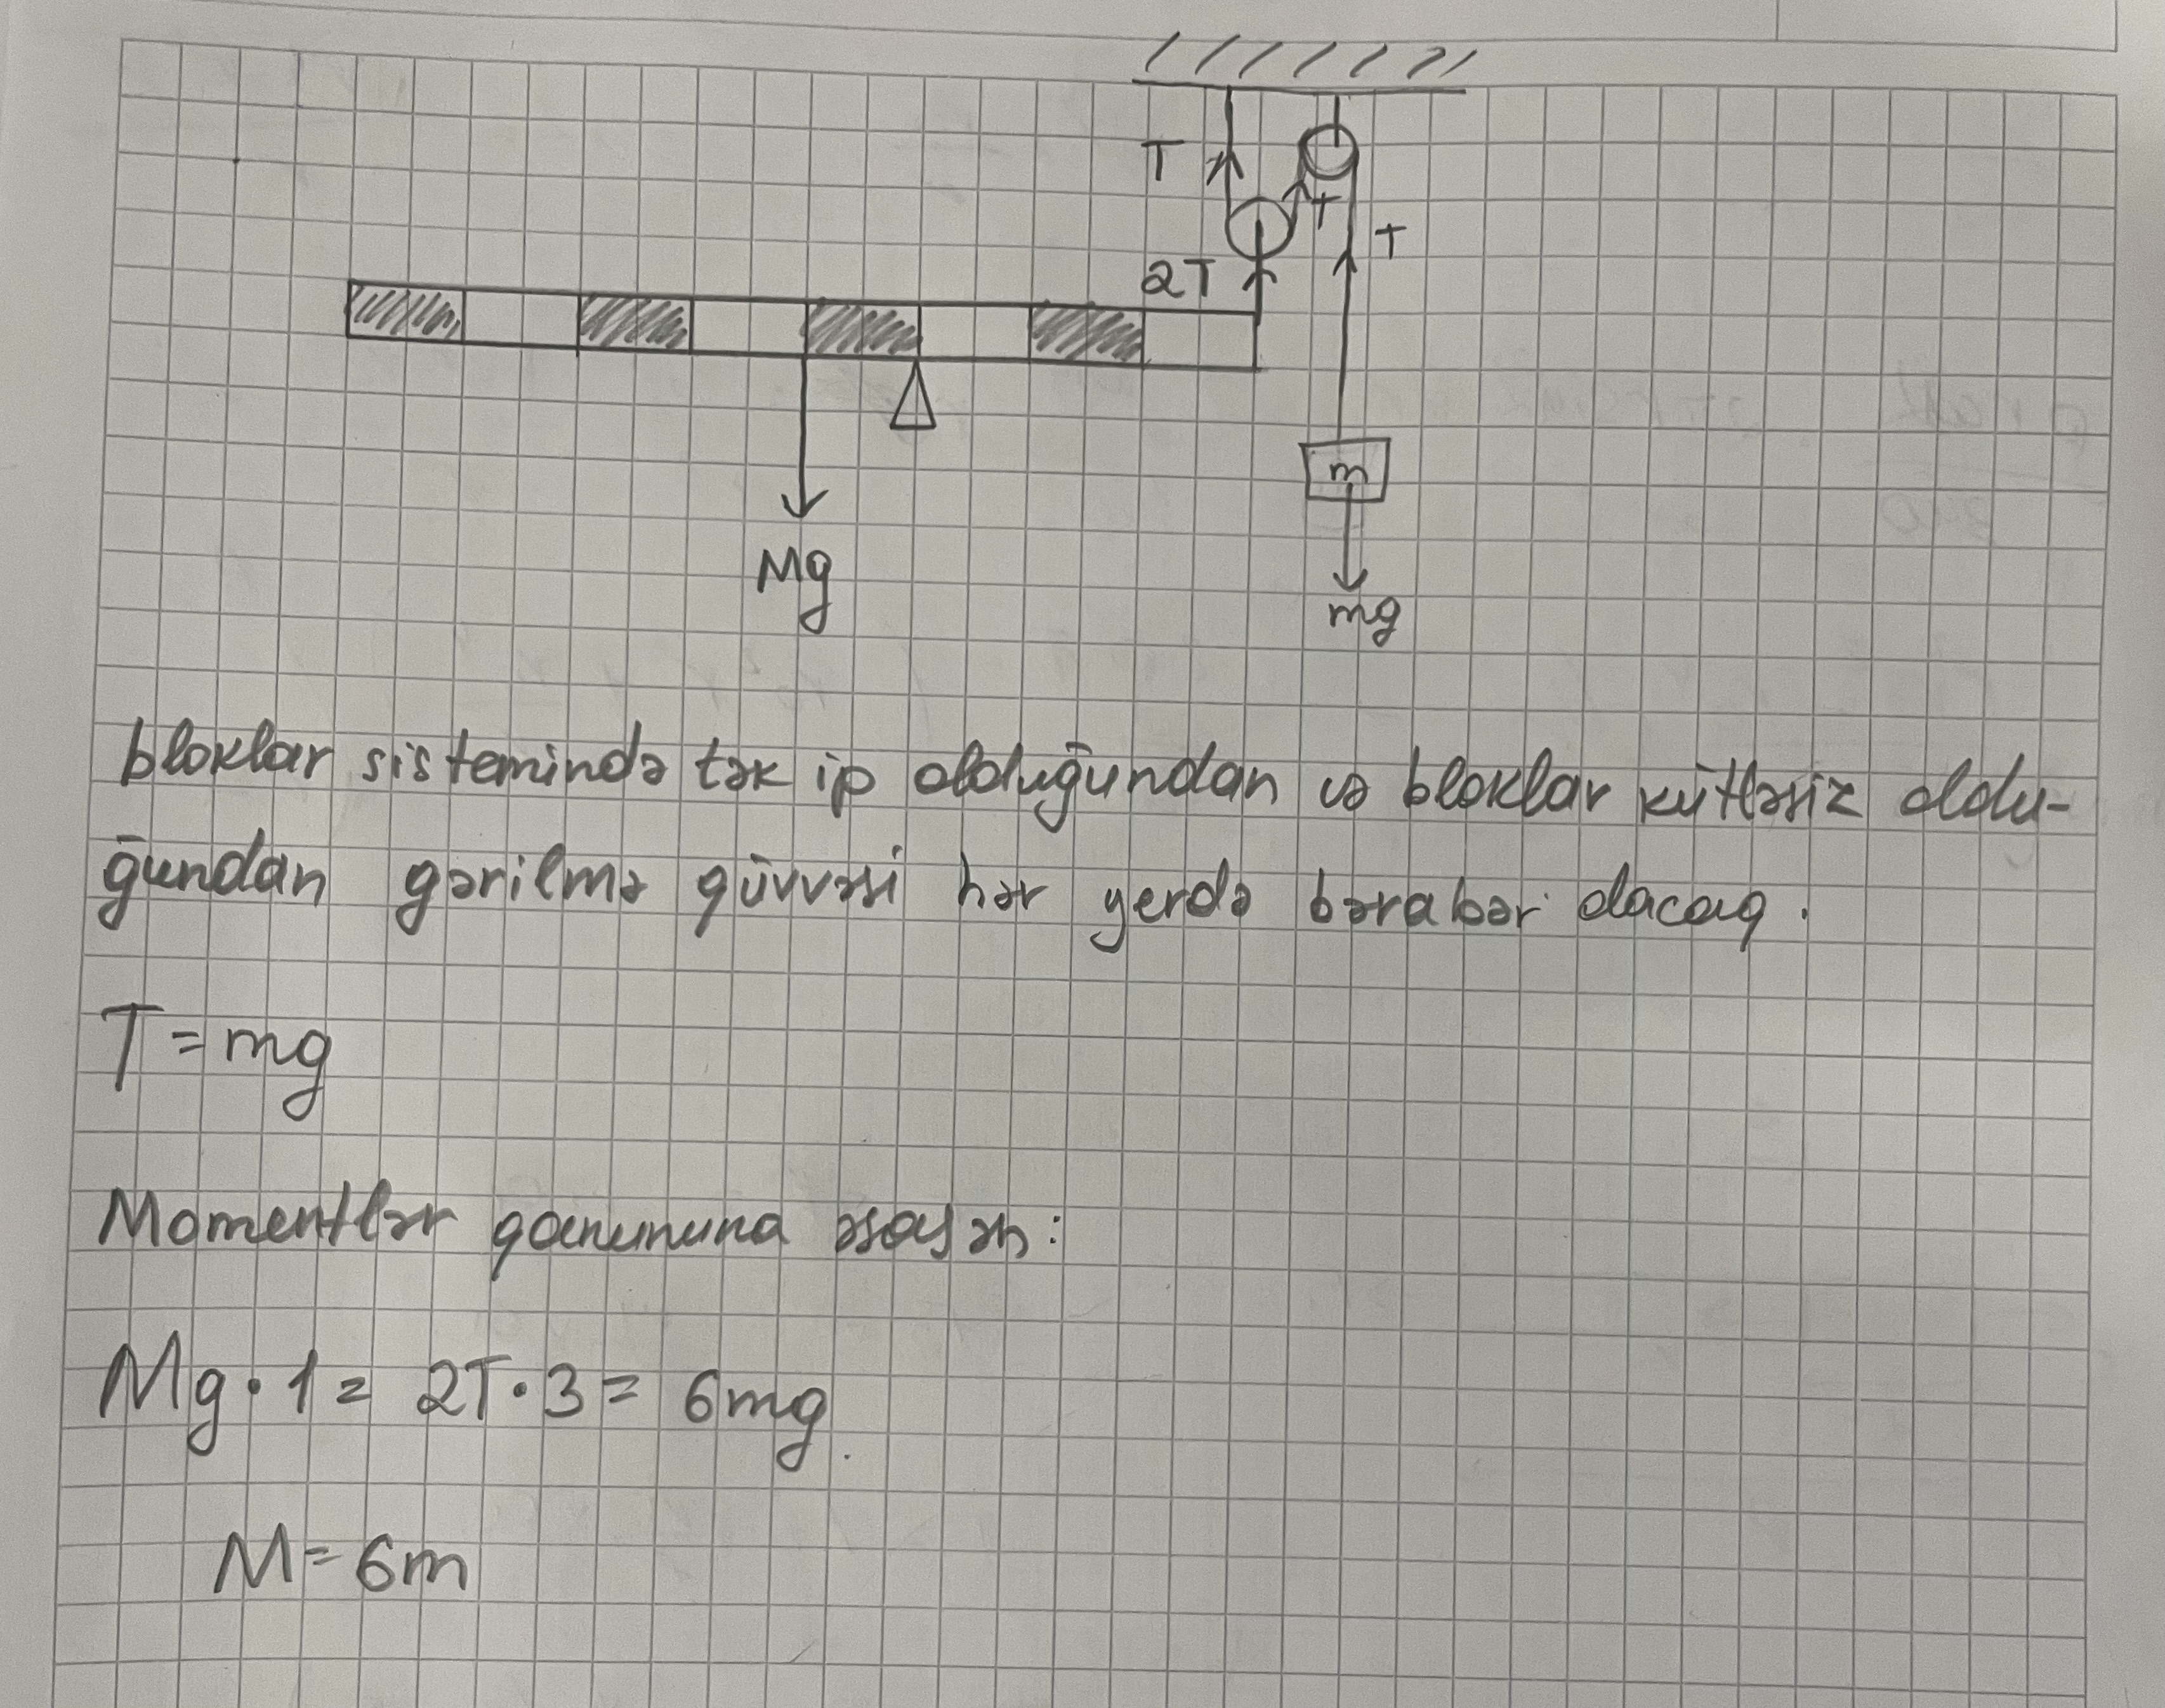 T
T
T
2T
m
Mg
mg
bloklar sistemində tək ip olduğundan və bloklar kütləsiz oldu-
ğundan gərilmə qüvvəsi hər yerdə bərabər olacaq.
T = mg
Momentlər qanununa əsasən:
Mg · 1 = 2T · 3 = 6mg.
M = 6m